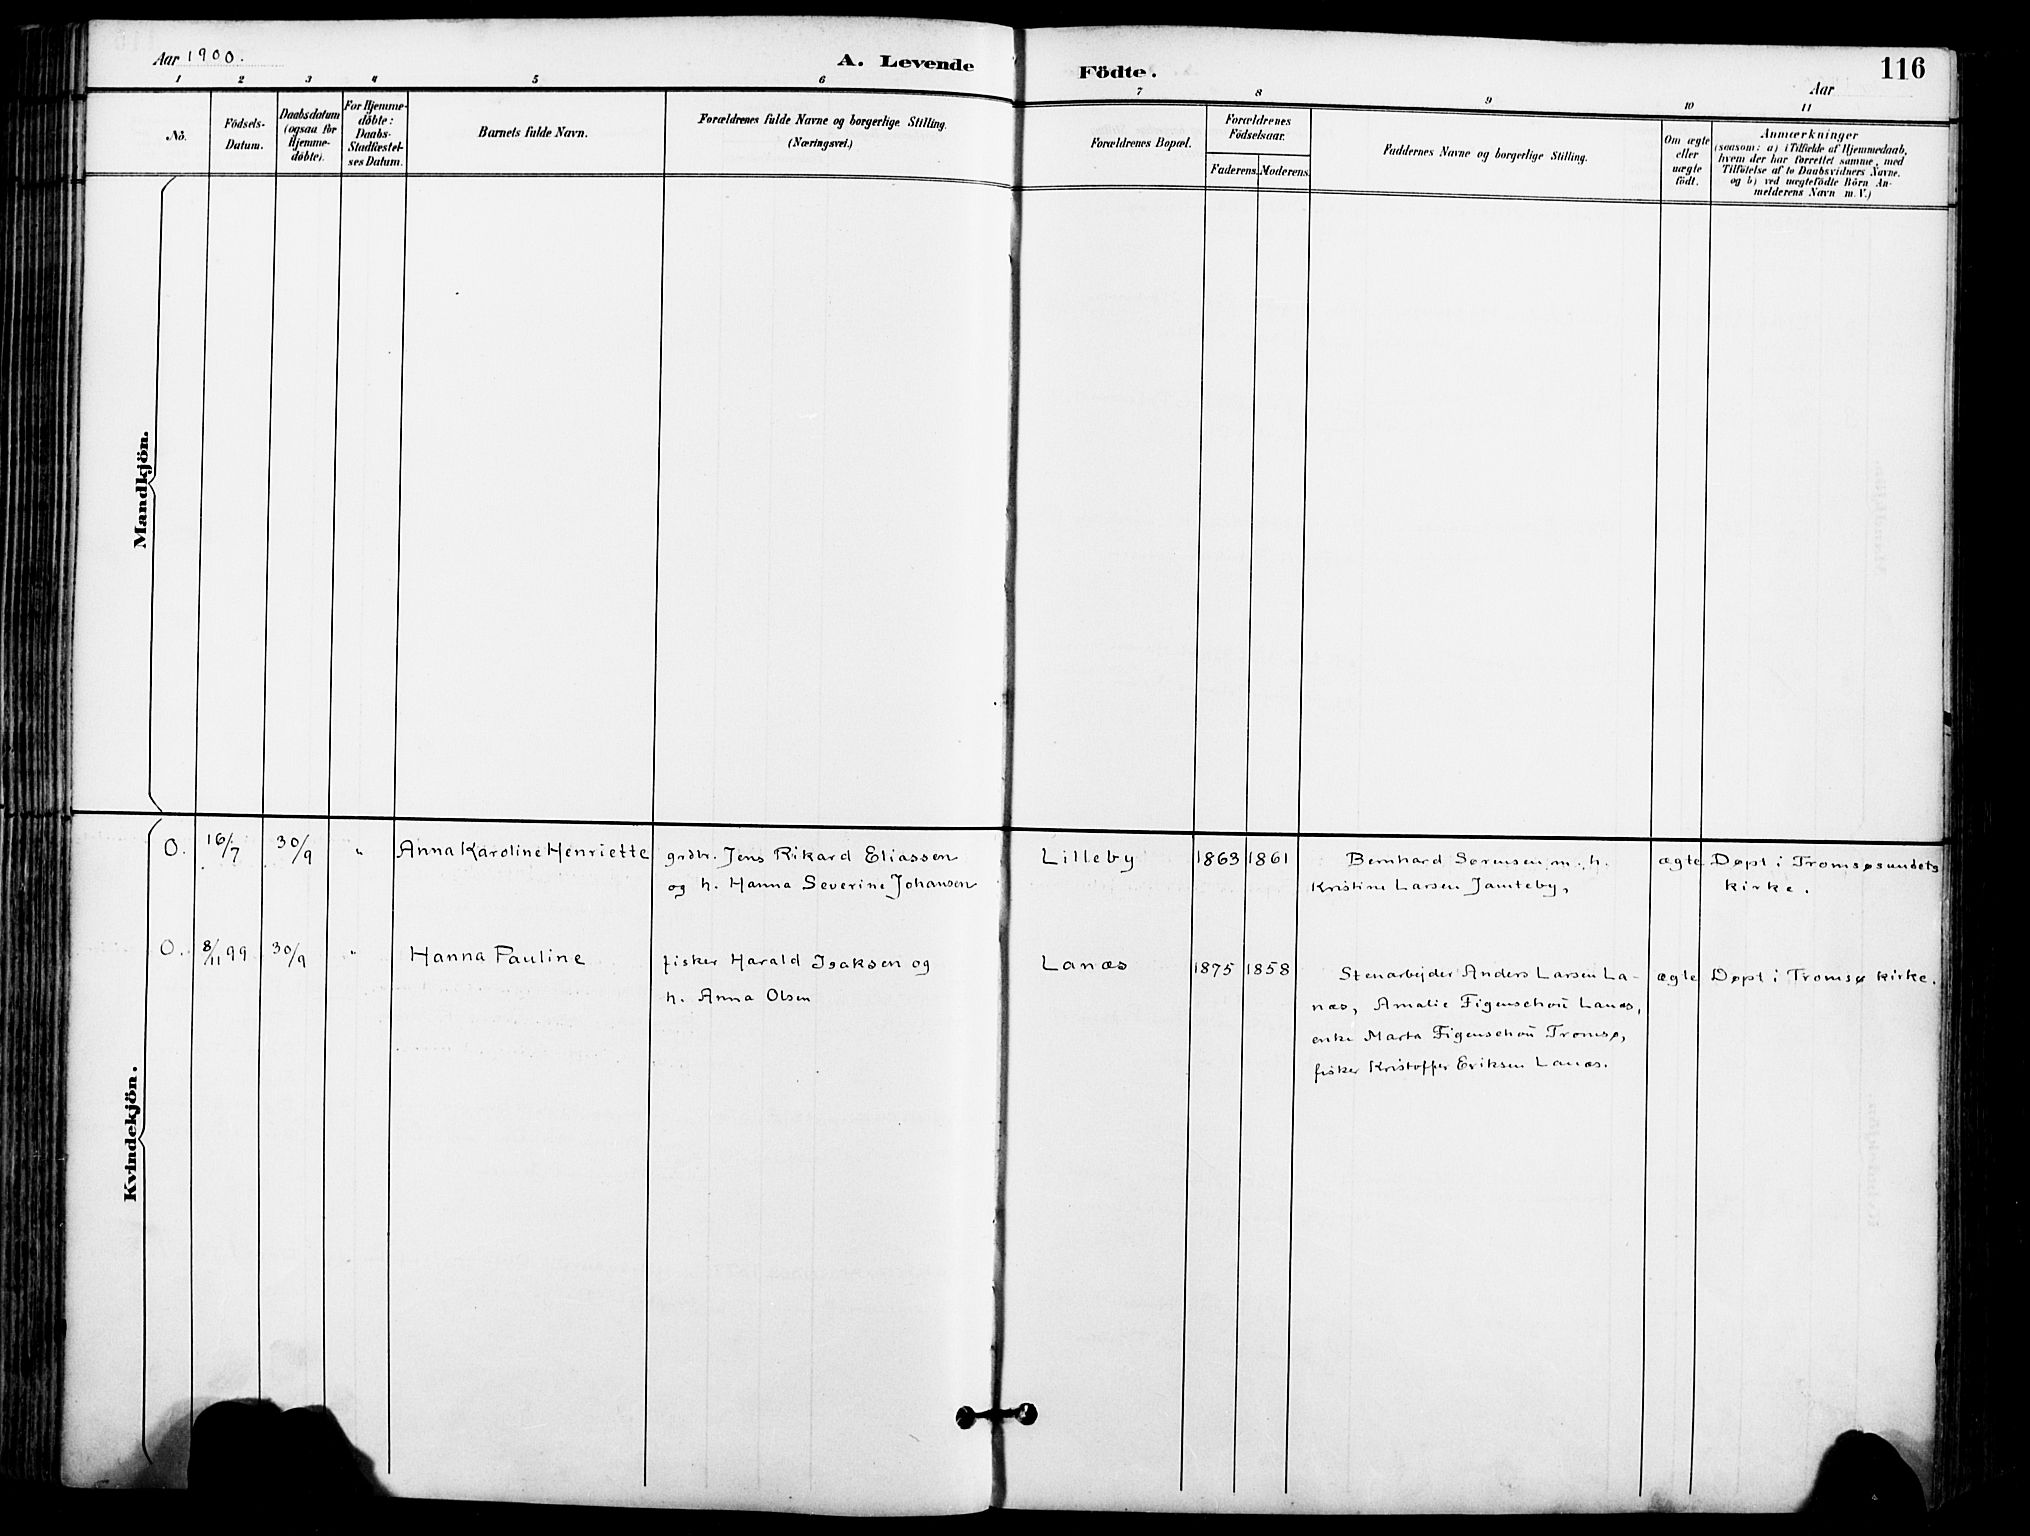 Aar 1900.
A. Levende Födte.
Aar
116
1 2 3 4 5 6 7 8 9 10 11
No.
Födsels-
Datum.
Daabsdatum
(ogsaa for
Hjemme-
döbte).
For Hjemme-
döbte:
Daabs-
Stadfæstel-
ses Datum.
Barnets fulde Navn.
Forældrenes fulde Navne og borgerlige Stilling.
(Næringsvei.)
Forældrenes Bopæl.
Forældrenes
Födselsaar.
Faderens. Moderens.
Faddernes Navne og borgerlige Stilling.
Om ægte
eller
uægte
födt.
Anmærkninger
(saasom: a) i Tilfælde af Hjemmedaab,
hvem der har forrettet samme, med
Tilföielse af to Daabsvidners Navne.
og b) ved uægtefödte Börn An-
melderens Navn m.V.)
Mandkjön.
Kvindekjön.
O. 16/7 30/9 " Anna Karoline Henriette grdbr. Jens Rikard Eliassen Lilleby 1863 1861 Bernhard Sørensen m. h. ægte Døpt i Tromsøsundets
og h. Hanna Severine Johansen Kristine Larsen Jamteby, kirke.
O. 8/11 99 30/9 " Hanna Pauline fisker Harald Isaksen og Lanæs 1875 1858 Stenarbejder Anders Larsen La- ægte Døpt i Tromsø kirke.
h. Anna Olsen næs, Amalie Figenschoŭ Lanæs,
enke Marta Figenschoŭ Tromsø,
fisker Kristoffer Eriksen Lanæs.